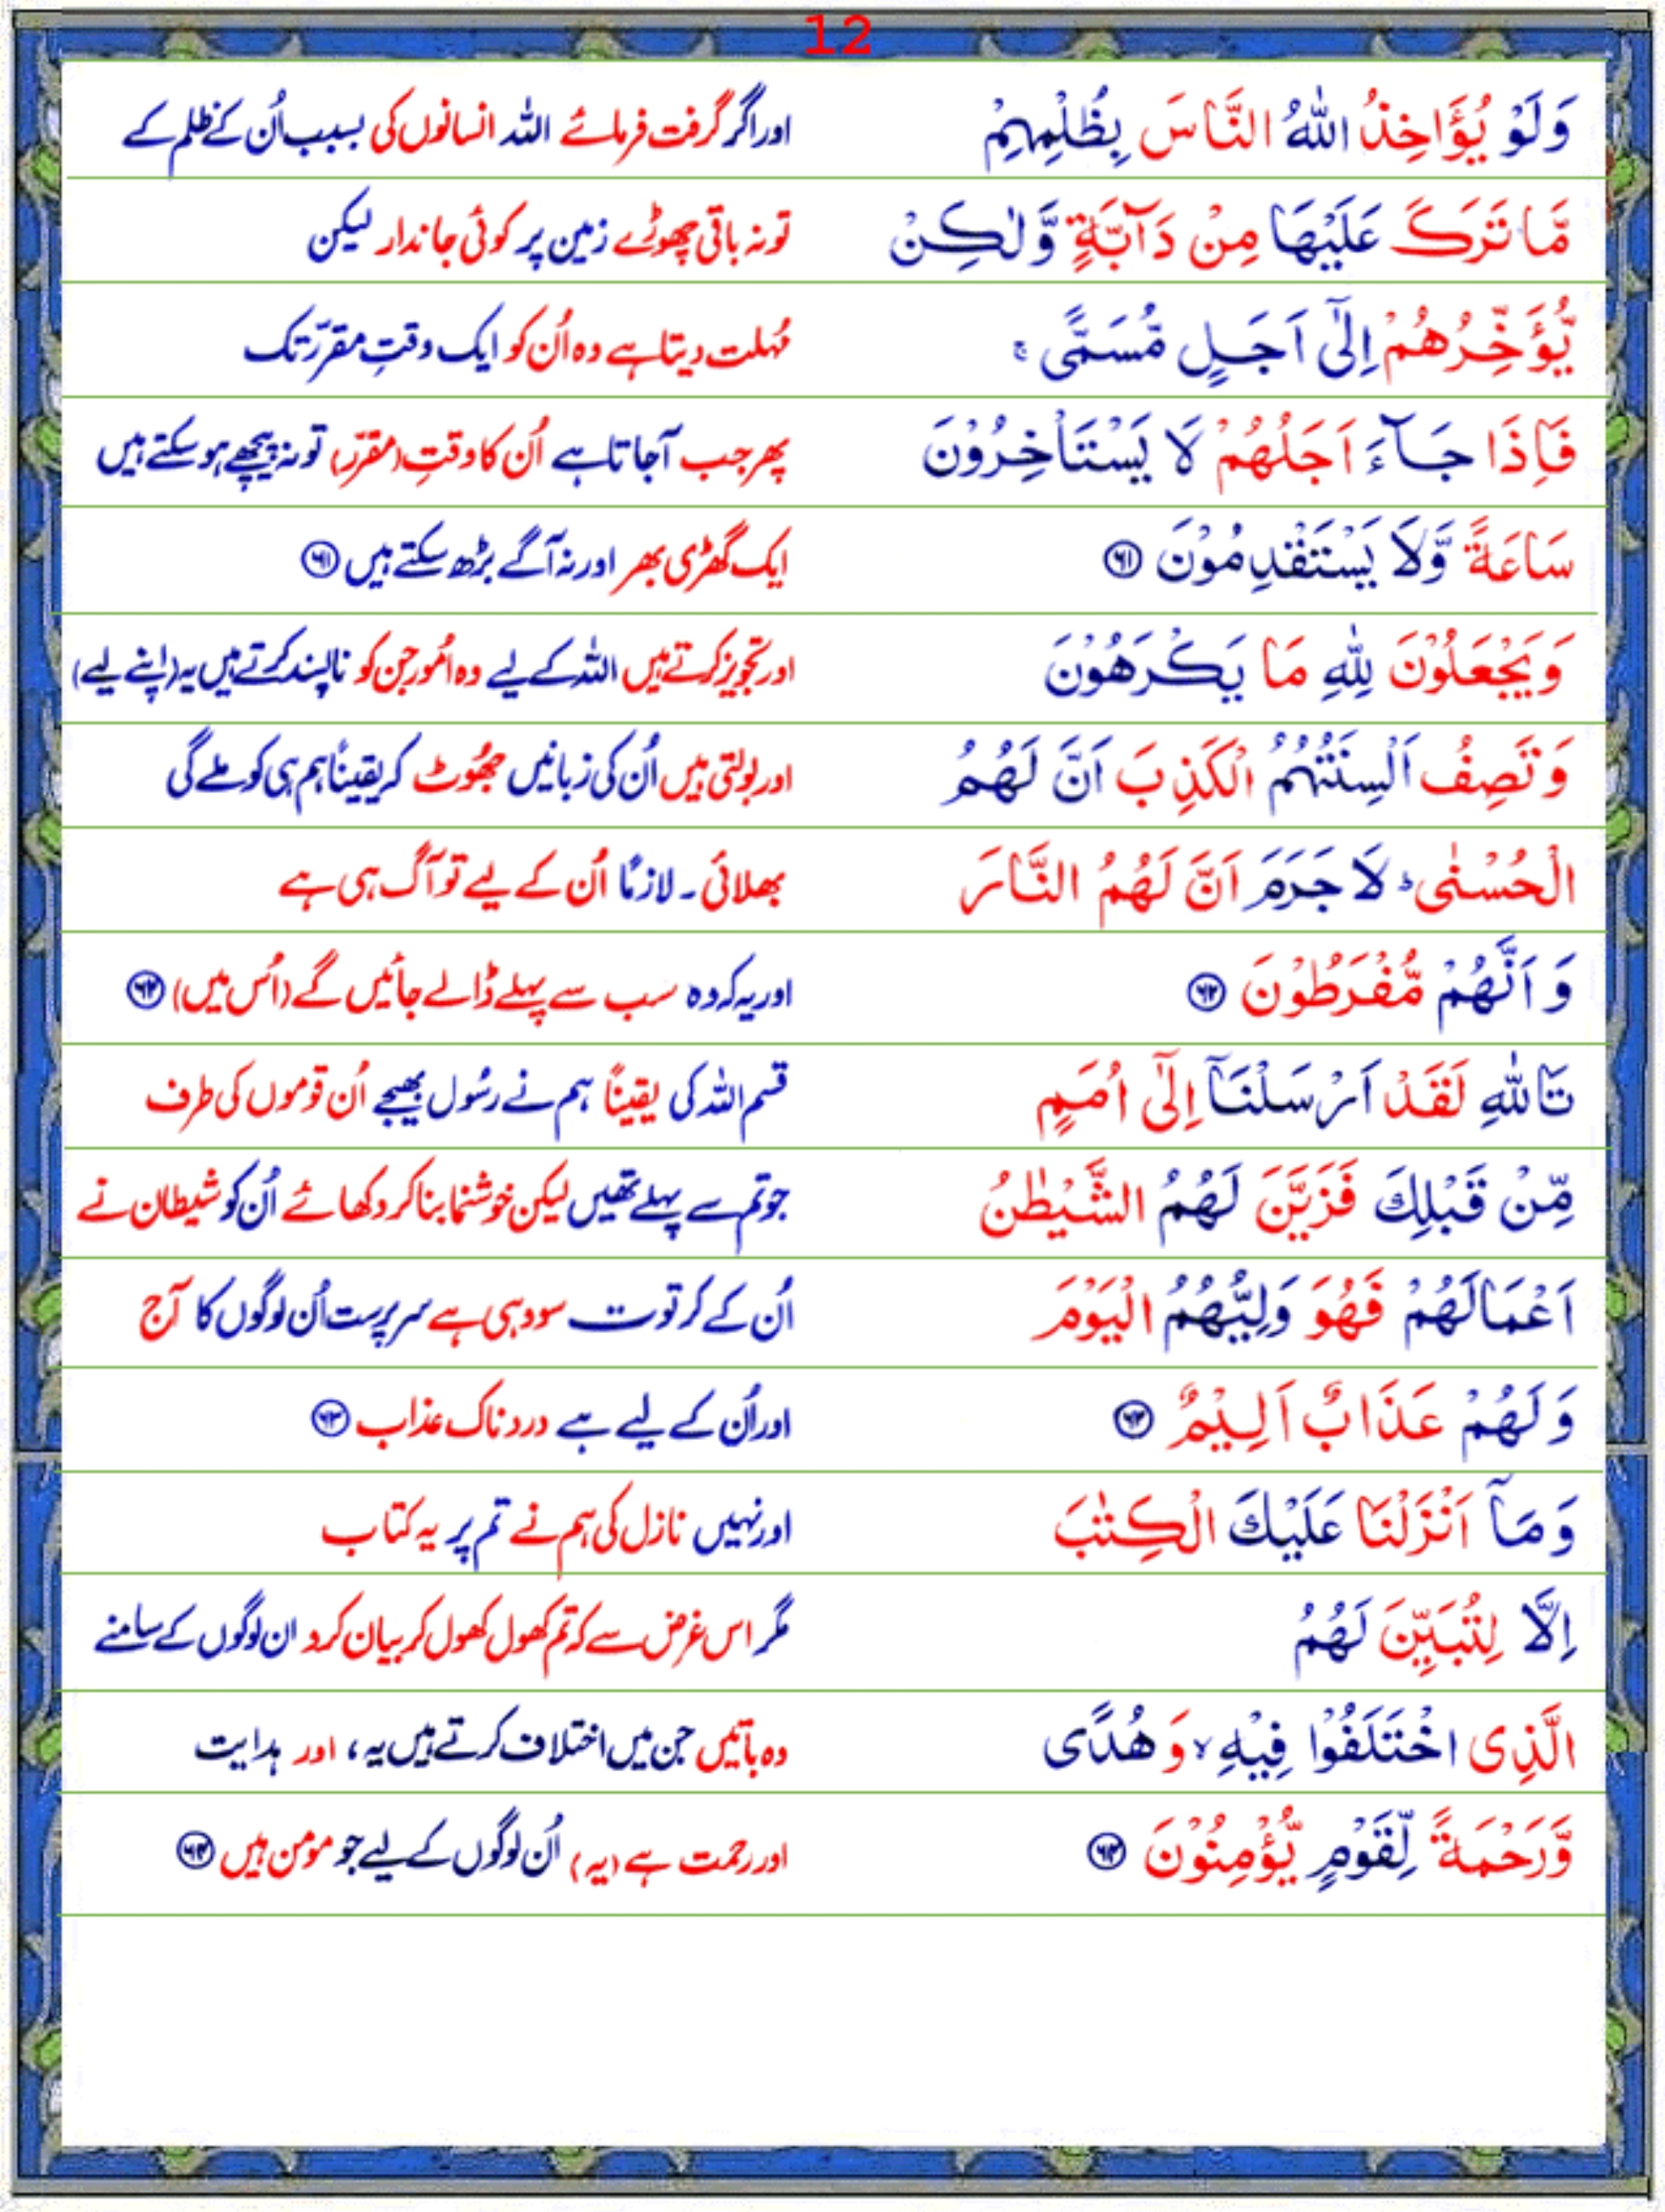 12
وَلَوْ يُؤَاخِذُ اللّٰهُ النَّاسَ بِظُلْمِهِمْ
اور اگر گرفت فرمائے اللہ انسانوں کی بسبب اُن کے ظلم کے
مَّا تَرَكَ عَلَيْهَا مِنْ دَآبَّةٍ وَّلٰكِنْ
تو نہ باقی چھوڑے زمین پر کوئی جاندار لیکن
يُّؤَخِّرُهُمْ اِلٰٓى اَجَلٍ مُّسَمًّى ۚ
مُہلت دیتا ہے وہ اُن کو ایک وقتِ مقرّر تک
فَاِذَا جَآءَ اَجَلُهُمْ لَا يَسْتَاْخِرُوْنَ
پھر جب آجاتا ہے اُن کا وقتِ (مقرّر) تو نہ پیچھے ہو سکتے ہیں
سَاعَةً وَّلَا يَسْتَقْدِمُوْنَ ﴿۶۱﴾
ایک گھڑی بھر اور نہ آگے بڑھ سکتے ہیں ﴿۶۱﴾
وَيَجْعَلُوْنَ لِلّٰهِ مَا يَكْرَهُوْنَ
اور تجویز کرتے ہیں اللہ کے لیے وہ اُمور جن کو ناپسند کرتے ہیں یہ (اپنے لیے)
وَتَصِفُ اَلْسِنَتُهُمُ الْكَذِبَ اَنَّ لَهُمُ
اور بولتی ہیں اُن کی زبانیں جھُوٹ کہ یقیناً ہم ہی کو ملے گی
الْحُسْنٰى ؕ لَا جَرَمَ اَنَّ لَهُمُ النَّارَ
بھلائی ۔ لازماً اُن کے لیے تو آگ ہی ہے
وَاَنَّهُمْ مُّفْرَطُوْنَ ﴿۶۲﴾
اور یہ کہ وہ سب سے پہلے ڈالے جائیں گے (اُس میں) ﴿۶۲﴾
تَاللّٰهِ لَقَدْ اَرْسَلْنَاۤ اِلٰٓى اُمَمٍ
قسم اللہ کی یقیناً ہم نے رسُول بھیجے اُن قوموں کی طرف
مِّنْ قَبْلِكَ فَزَيَّنَ لَهُمُ الشَّيْطٰنُ
جو تم سے پہلے تھیں لیکن خوشنما بنا کر دکھائے اُن کو شیطان نے
اَعْمَالَهُمْ فَهُوَ وَلِيُّهُمُ الْيَوْمَ
اُن کے کرتوت سو وہی ہے سرپرست اُن لوگوں کا آج
وَلَهُمْ عَذَابٌ اَلِيْمٌ ﴿۶۳﴾
اور اُن کے لیے ہے دردناک عذاب ﴿۶۳﴾
وَمَاۤ اَنْزَلْنَا عَلَيْكَ الْكِتٰبَ
اور نہیں نازل کی ہم نے تم پر یہ کتاب
اِلَّا لِتُبَيِّنَ لَهُمُ
مگر اس غرض سے کہ تم کھول کھول کر بیان کرو ان لوگوں کے سامنے
الَّذِى اخْتَلَفُوْا فِيْهِ ۙ وَهُدًى
وہ باتیں جن میں اختلاف کرتے ہیں یہ، اور ہدایت
وَّرَحْمَةً لِّقَوْمٍ يُّؤْمِنُوْنَ ﴿۶۴﴾
اور رحمت ہے (یہ) اُن لوگوں کے لیے جو مومن ہیں ﴿۶۴﴾